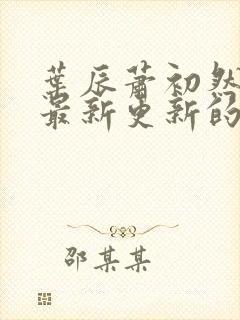 葉辰蕭初然
最新更新的
邵某某